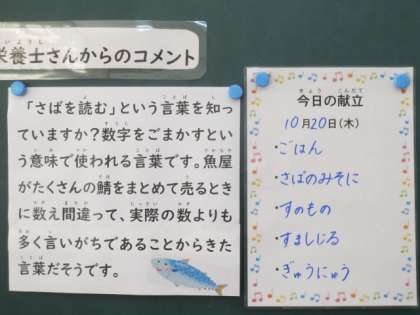 栄養士さんからのコメント
「さばを読む」という言葉を知っ
ていますか？数字をごまかすとい
う意味で使われる言葉です。魚屋
がたくさんの鯖をまとめて売るとき
に数え間違って、実際の数よりも
多く言いがちであることからきた
言葉だそうです。
今日の献立
10月20日(木)
・ごはん
・さばのみそに
・すのもの
・すましじる
・ぎゅうにゅう